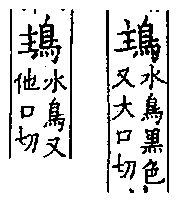 水鳥黑色
又大口切
水鳥又
他口切